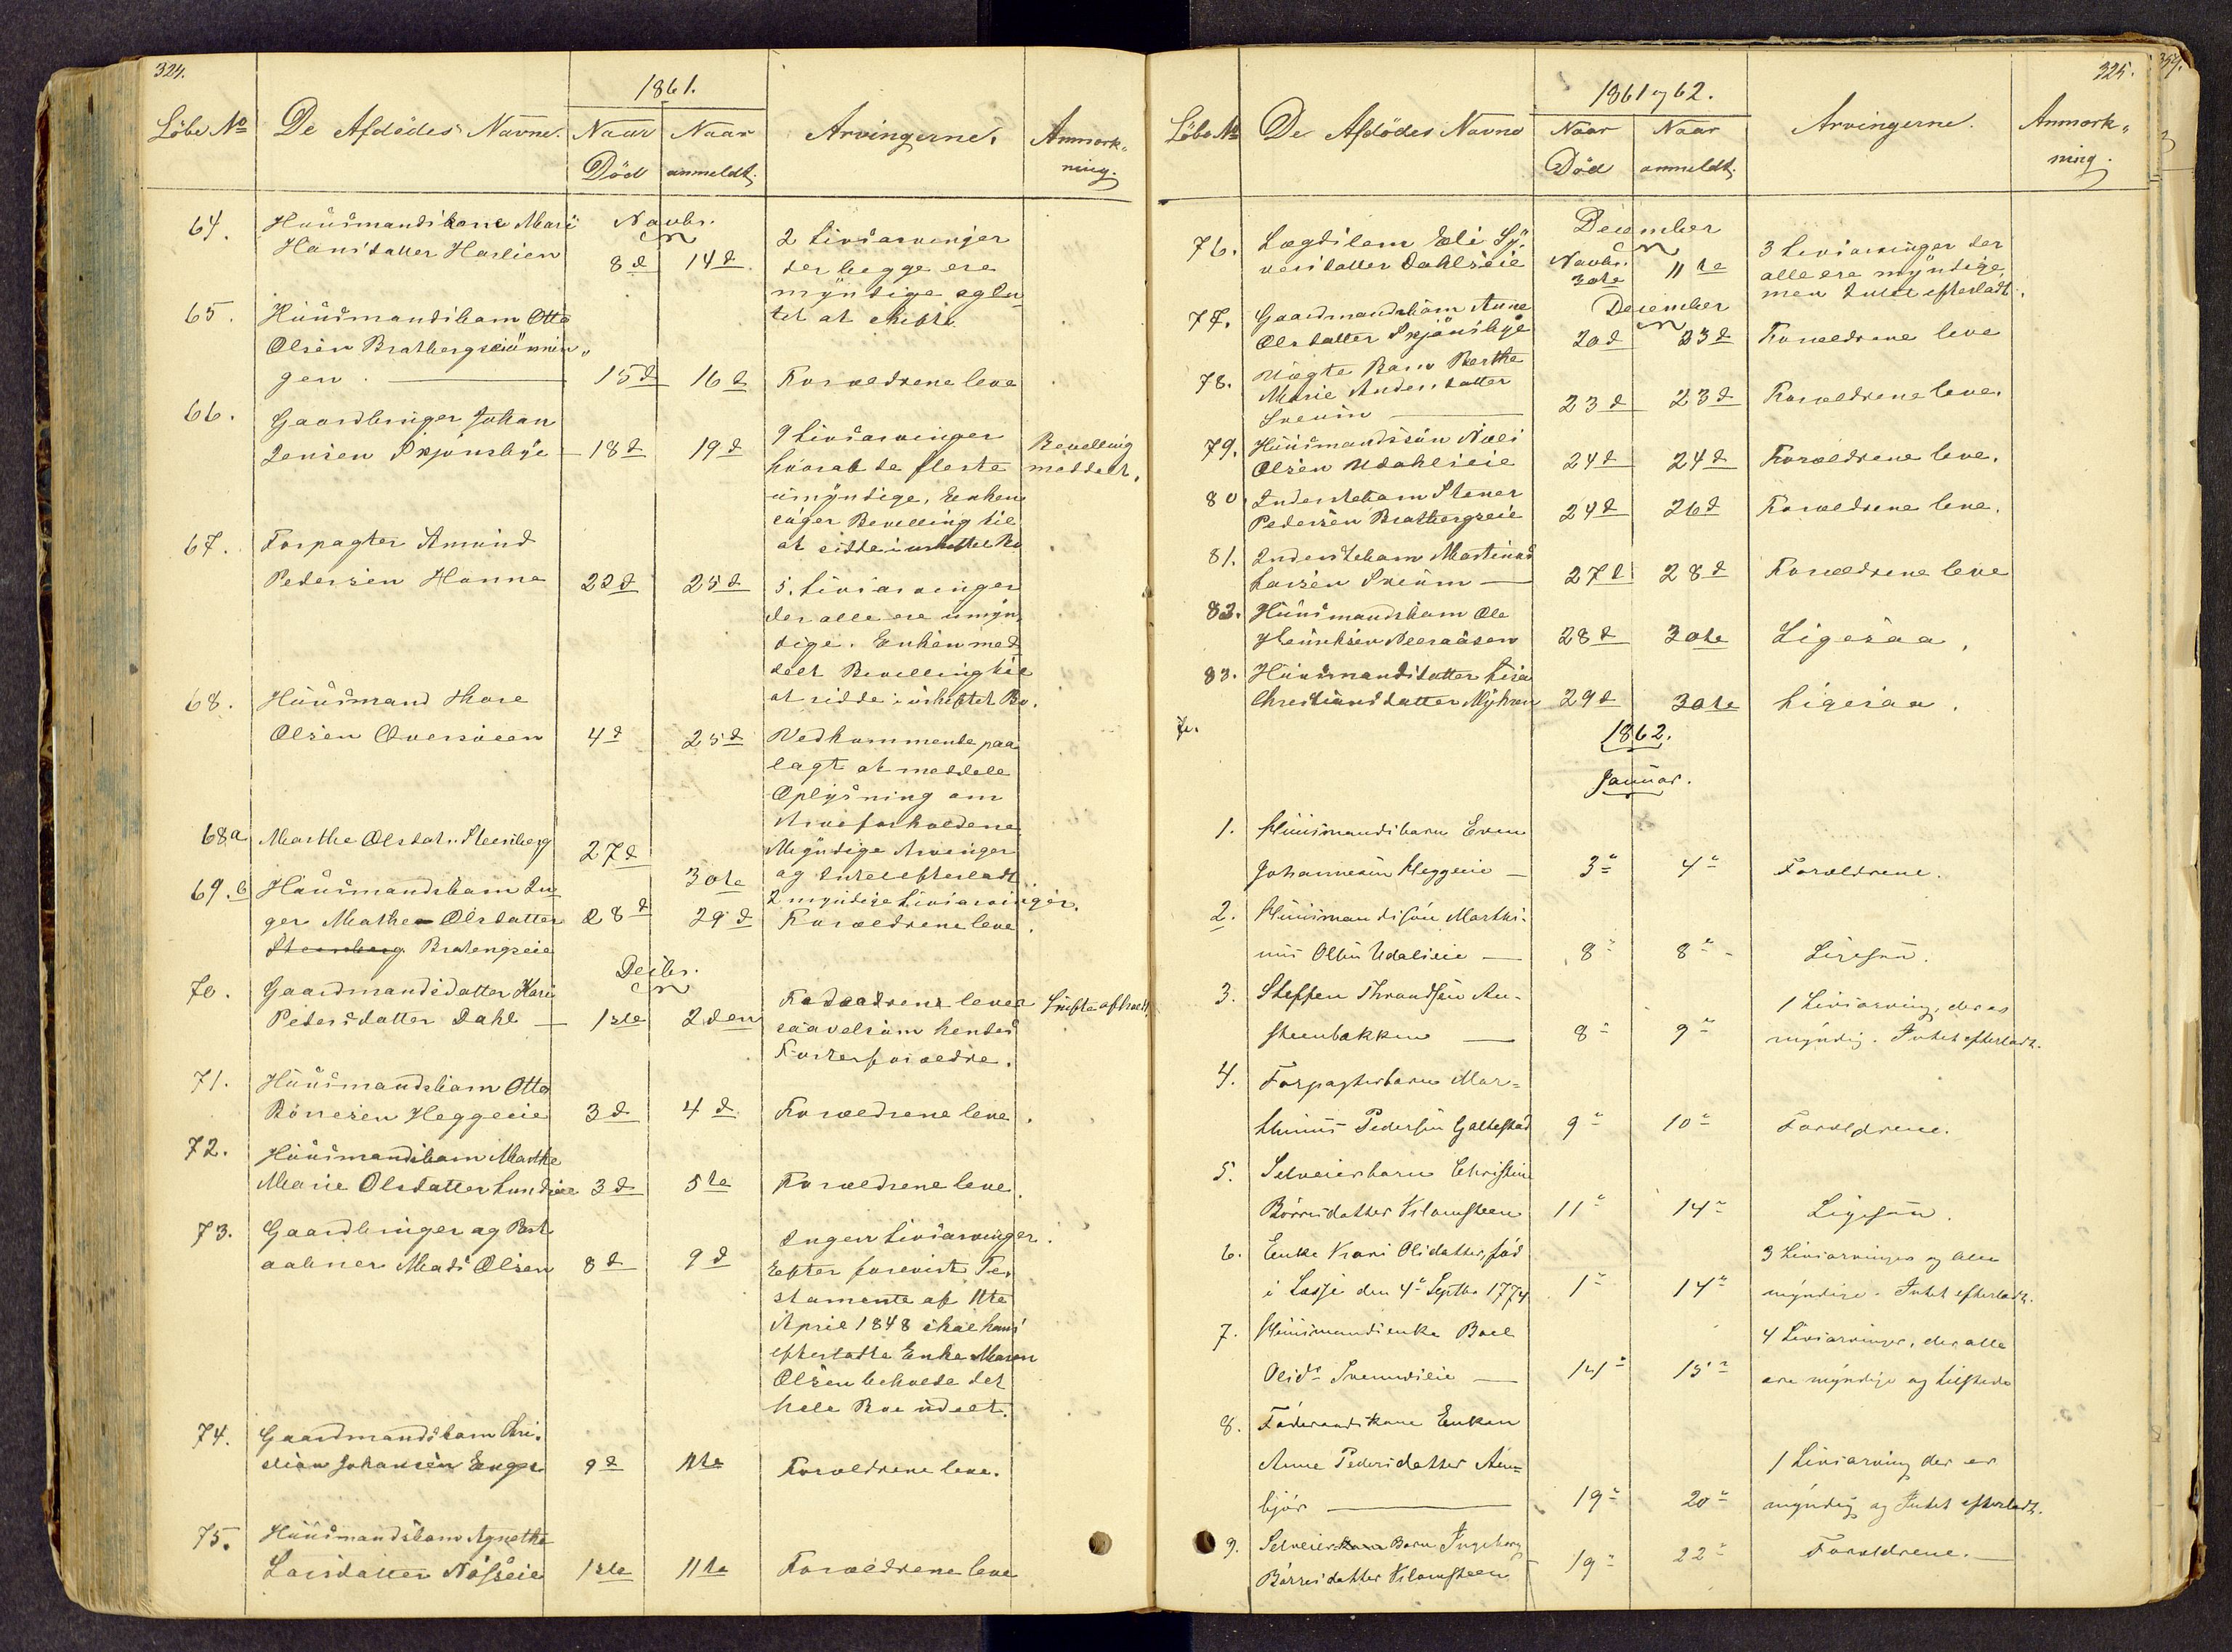 324.
1861.
Löbe No
De Afdödes Navne.
Naar Död
Naar anmeldt.
Arvingerne.
Anmærk-
ning.
64.
Huusmandskone Mari
Hansdatter Haslien
Novbr.
8d
14d
2 Livsarvinger
der begge ere
myndige og In-
tet at skifte
65.
Huusmandsbarn Otto
Olsen Bratbergs
gen.
15d
16d
Forældrene leve
66.
Gaardbruger Johan
Jensen Skjönsbye
18d
19d
9 Livsarvinger
hvoraf de fleste
umyndige, Enken
söger Bevilling til
at sidde i uskiftet Bo
Bevilling
meddelt.
67.
Forpagter Amund
Pedersen Hanna
22d
25d
5. Livsarvinger
der alle ere umyn-
dige. Enken med
delt Bevilling til
at sidde i uskiftet Bo.
68.
Huusmand Thore
Olsen
4d
25d
Vedkommende paa
lagt at meddele
Oplysning om
Arveforholdene
68a
Marthe Olsdat. Steenberg
27d
30te
Myndige Arvinger
og Intet efterladt
2 myndige Livsarvinger.
69.b
Huusmandsbarn In
ger Mathea Olsdatter
Steenberg Bratengseie
28d
29d
Forældrene leve.
70.
Gaardmandsdatter Kari
Petersdatter Dahl
Decbr.
1ste
2den
Forældrene lever
saavelsom hendes
Fosterforældre.
Skifte afholdt
71.
Huusmandsbarn Otto
Börresen Heggeeie
3d
4d
Forældrene leve.
72.
Huusmandsbarn Marthe
Marie Olsdatter Lundseie
3d
5te
Forældrene leve.
73.
Gaardbruger og Post
aabner Mads Olsen
8d
9d
Ingen Livsarvinger.
Efter forevist Te-
stamente af 11te
April 1848 skal hans
efterladte Enke Maren
Olsen beholde det
hele Boe udeelt.
74.
Gaardmandsbarn Chri-
stian Johansen Enger
9d
11te
Forældrene leve.
75.
Huusmandsbarn Agnethe
Larsdatter Nösseie
1ste
11te
Forældrene leve
325.
1861 og 62.
Löbe No
De Afdödes Navne
Naar Död
Naar anmeldt.
Arvingerne.
Anmærk-
ning.
76.
Lægdslem Eli Sy-
versdatter Dahlseie
December
Novbr.
30te
11te
3 Livsarvinger der
alle ere myndige,
men Intet efterladt.
77.
Gaardmandsbarn Anne
Olsdatter Skjönsbye
December
20d
23d
Forældrene leve
78.
Uægte Barn Berthe
Marie Andersdatter
23d
23d
Forældrene leve.
79.
Huusmandssön Niels
Olsen Udahlseie
24d
24d
Forældrene leve.
80.
Inderstebarn Stener
Pedersen Bratbergseie
24d
26d
Forældrene leve.
81.
Inderstebarn Martinus
Larsen
27d
28d
Forældrene leve
82.
Huusmandsbarn Ole
28d
30te
Ligesaa.
83.
Huusmandsdatter Lisa
Christiansdatter Myhren
29d
30te
Ligesaa.
1862.
Januar.
1.
Huusmandsbarn Even
Johannesen Heggeeie
3
4
Forældrene.
2.
Huusmandssön Marthi-
nus Olsen Udalseie
8
8
Ligesaa.
3.
Steffen Throndsen Au-
steenbakken
8
9
1 Livsarving, der er
myndig. Intet efterladt.
4.
Forpagterbarn Mar-
thinus Pedersen Galtestad
9
10
Forældrene.
5.
Selveierbarn Christine
Börresdatter Vilamsteen
11
14
Ligesaa.
6.
Enke Kari Olsdatter, föd
i Lesje den 4 Septbr 1774
1
14
3 Livsarvinger og Alle
myndige. Intet efterladt.
7.
Huusmandsenke Boel
Olsd.
14
15
4 Livsarvinger, der alle
ere myndige og tilstede
8.
Föderaadskone Enken
Anne Pedersdatter Aus-
björ
19
20
1 Livsarving der er
myndig og Intet efterladt.
9.
Selveier Barn Ingeborg
Börresdatter Vilamsteen
19
22
Forældrene.